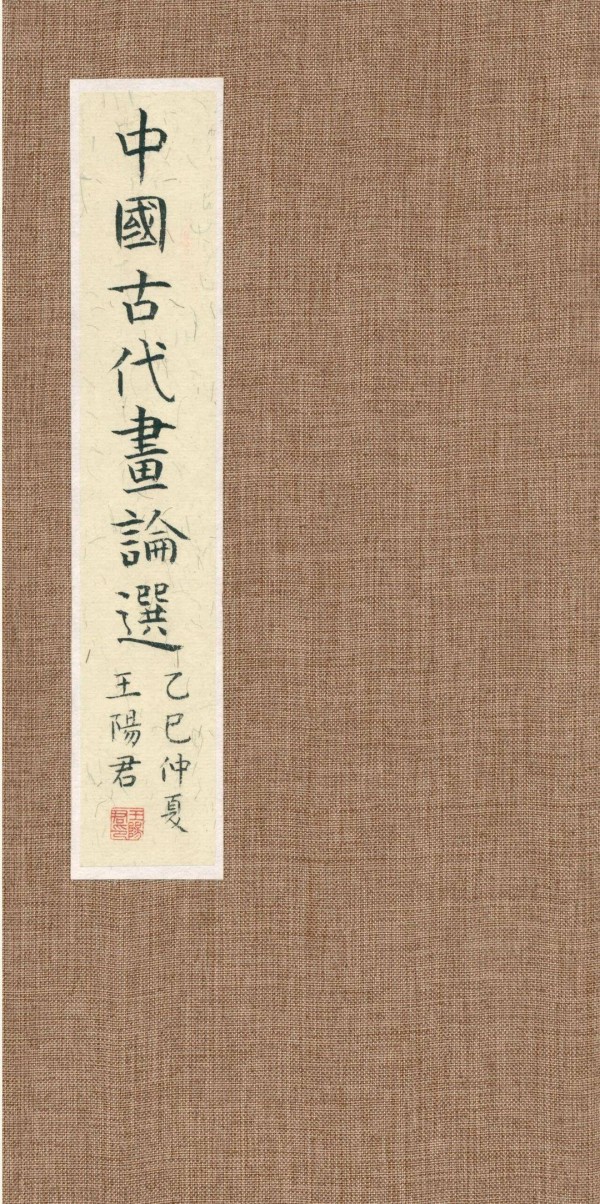 中國古代畫論選
乙巳仲夏
王陽君
王陽君印